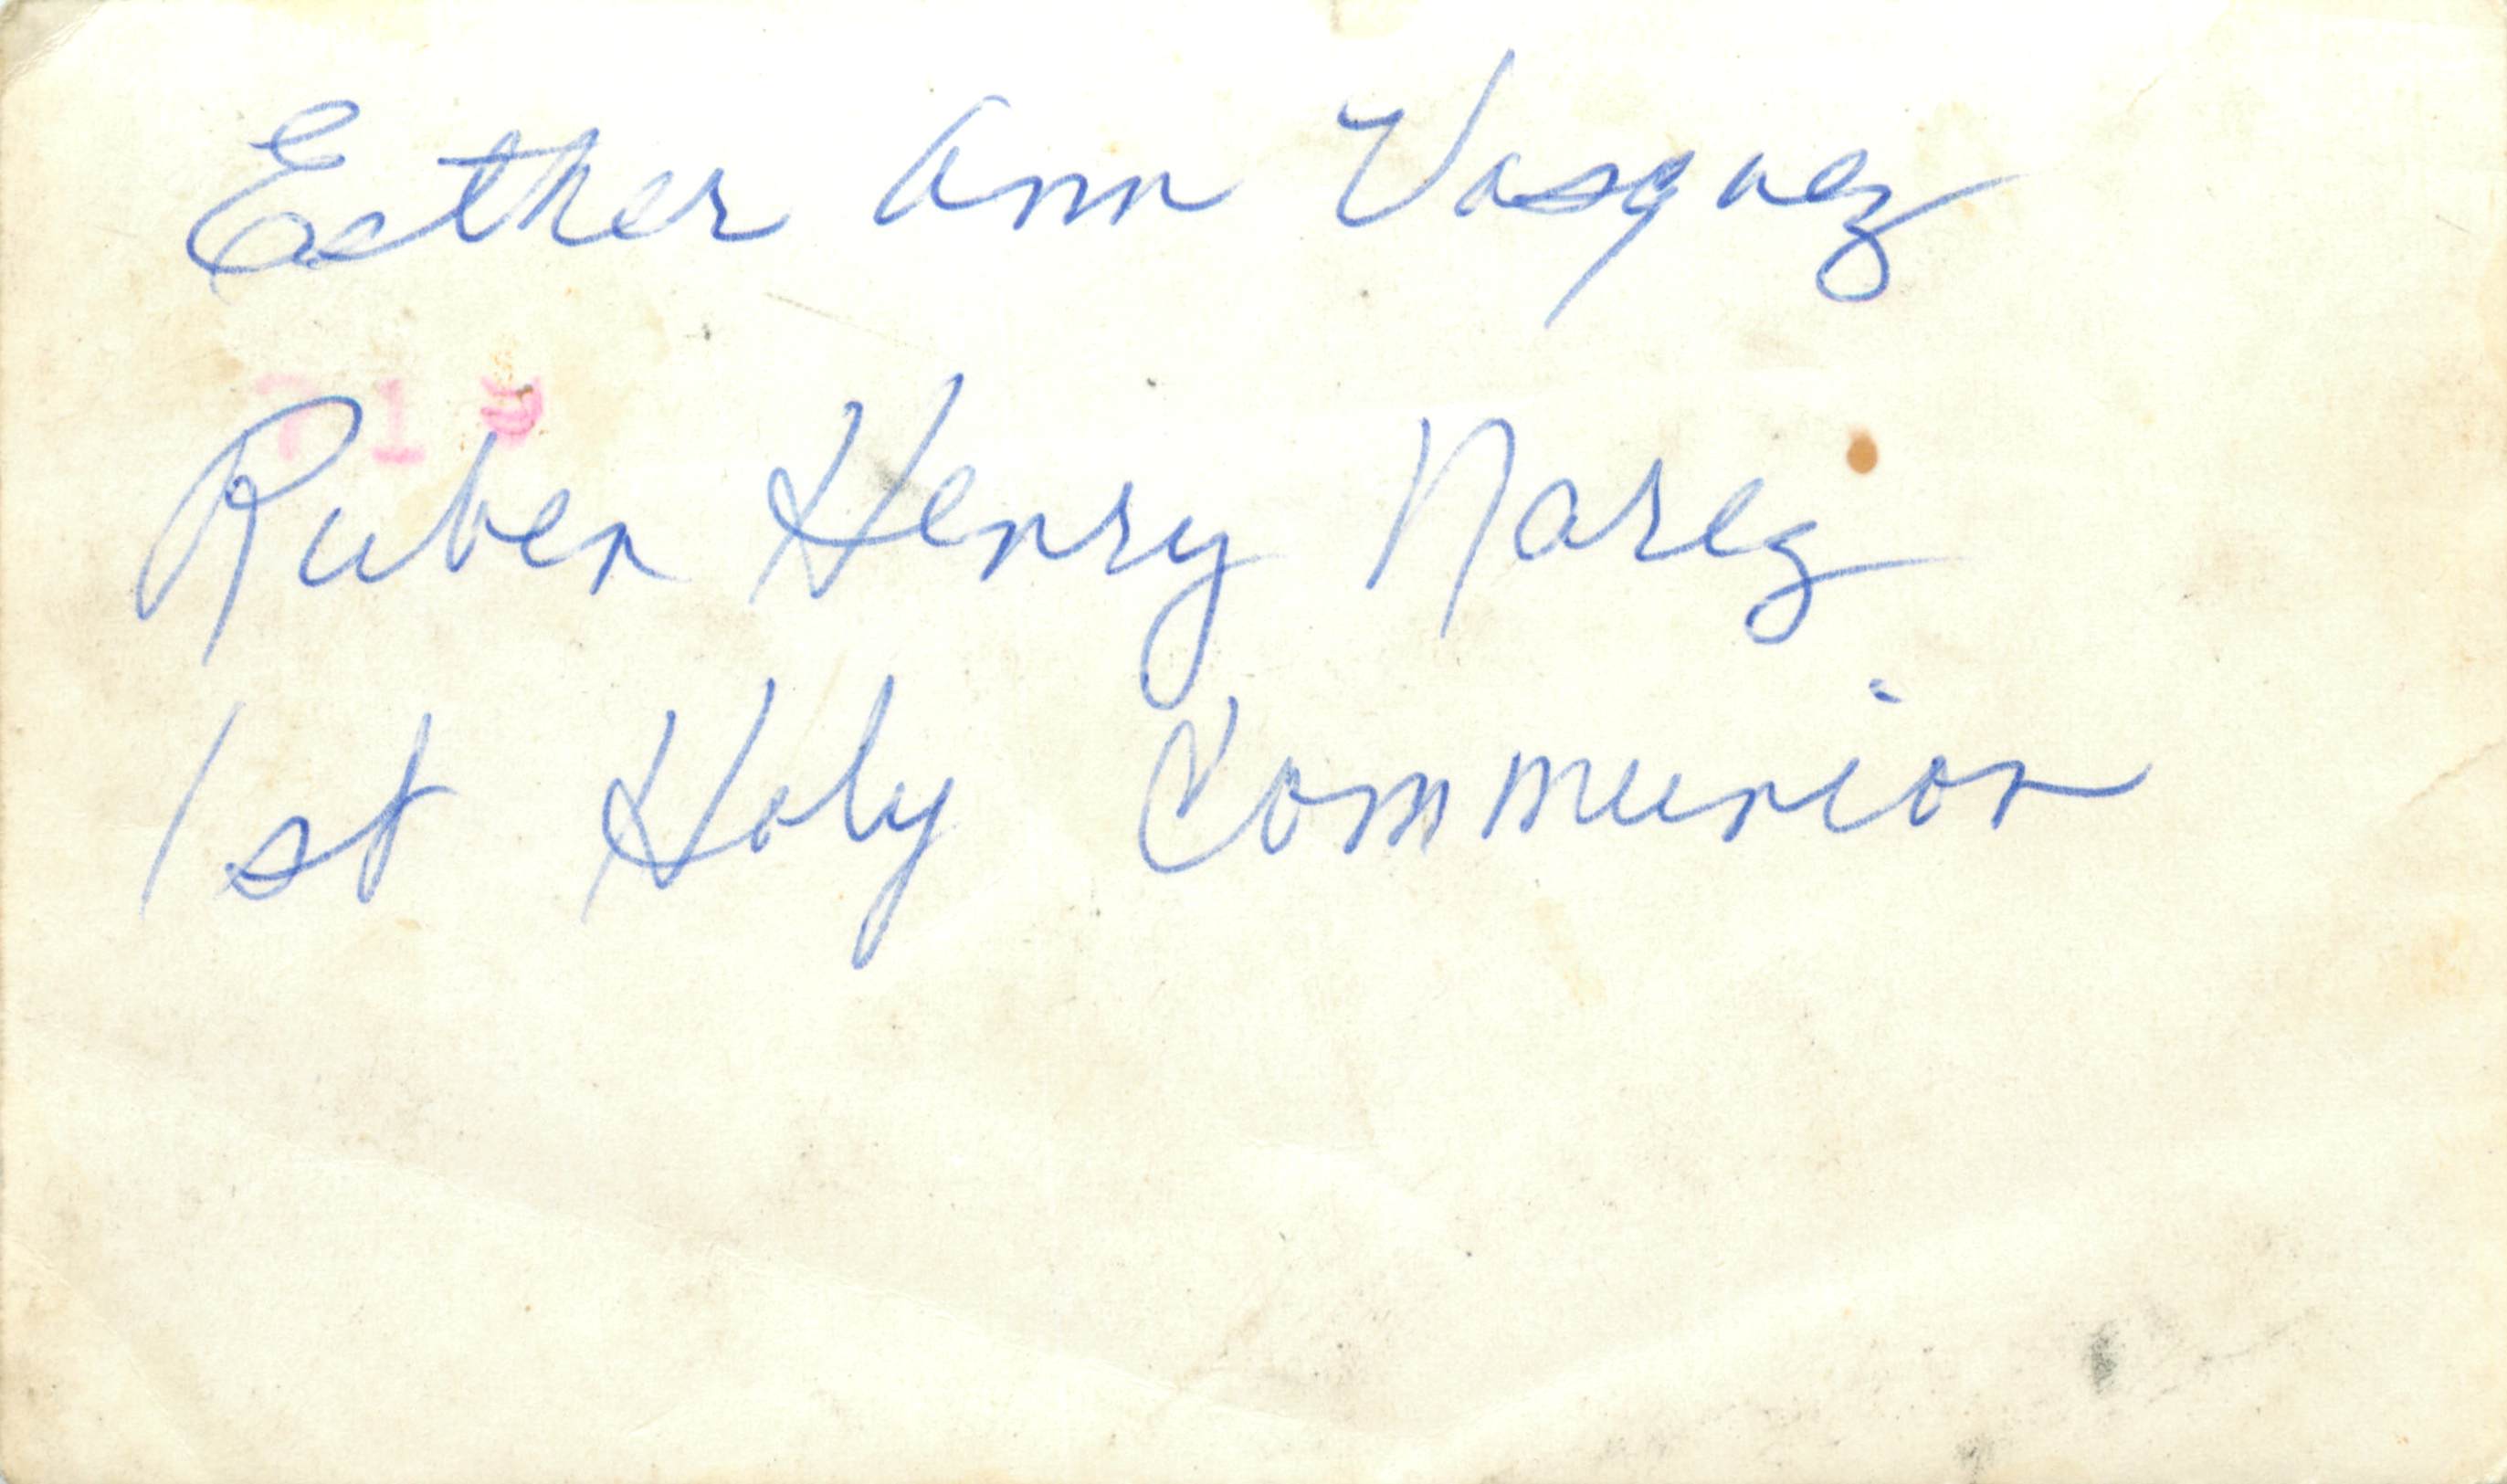 Esther Ann Vasquez
Ruben Henry Narez
1st Holy Communion